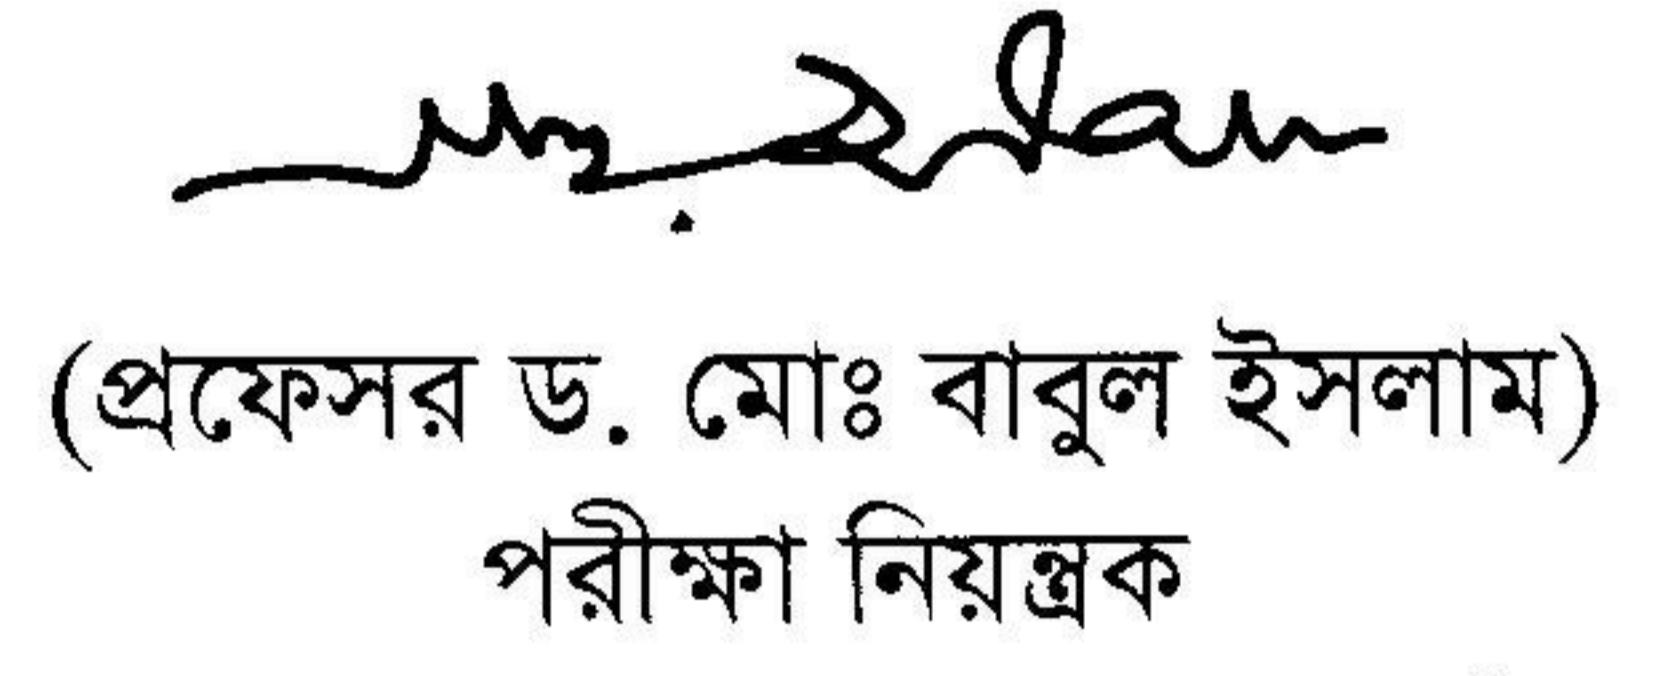 (প্রফেসর ড. মোঃ বাবুল ইসলাম)
পরীক্ষা নিয়ন্ত্রক